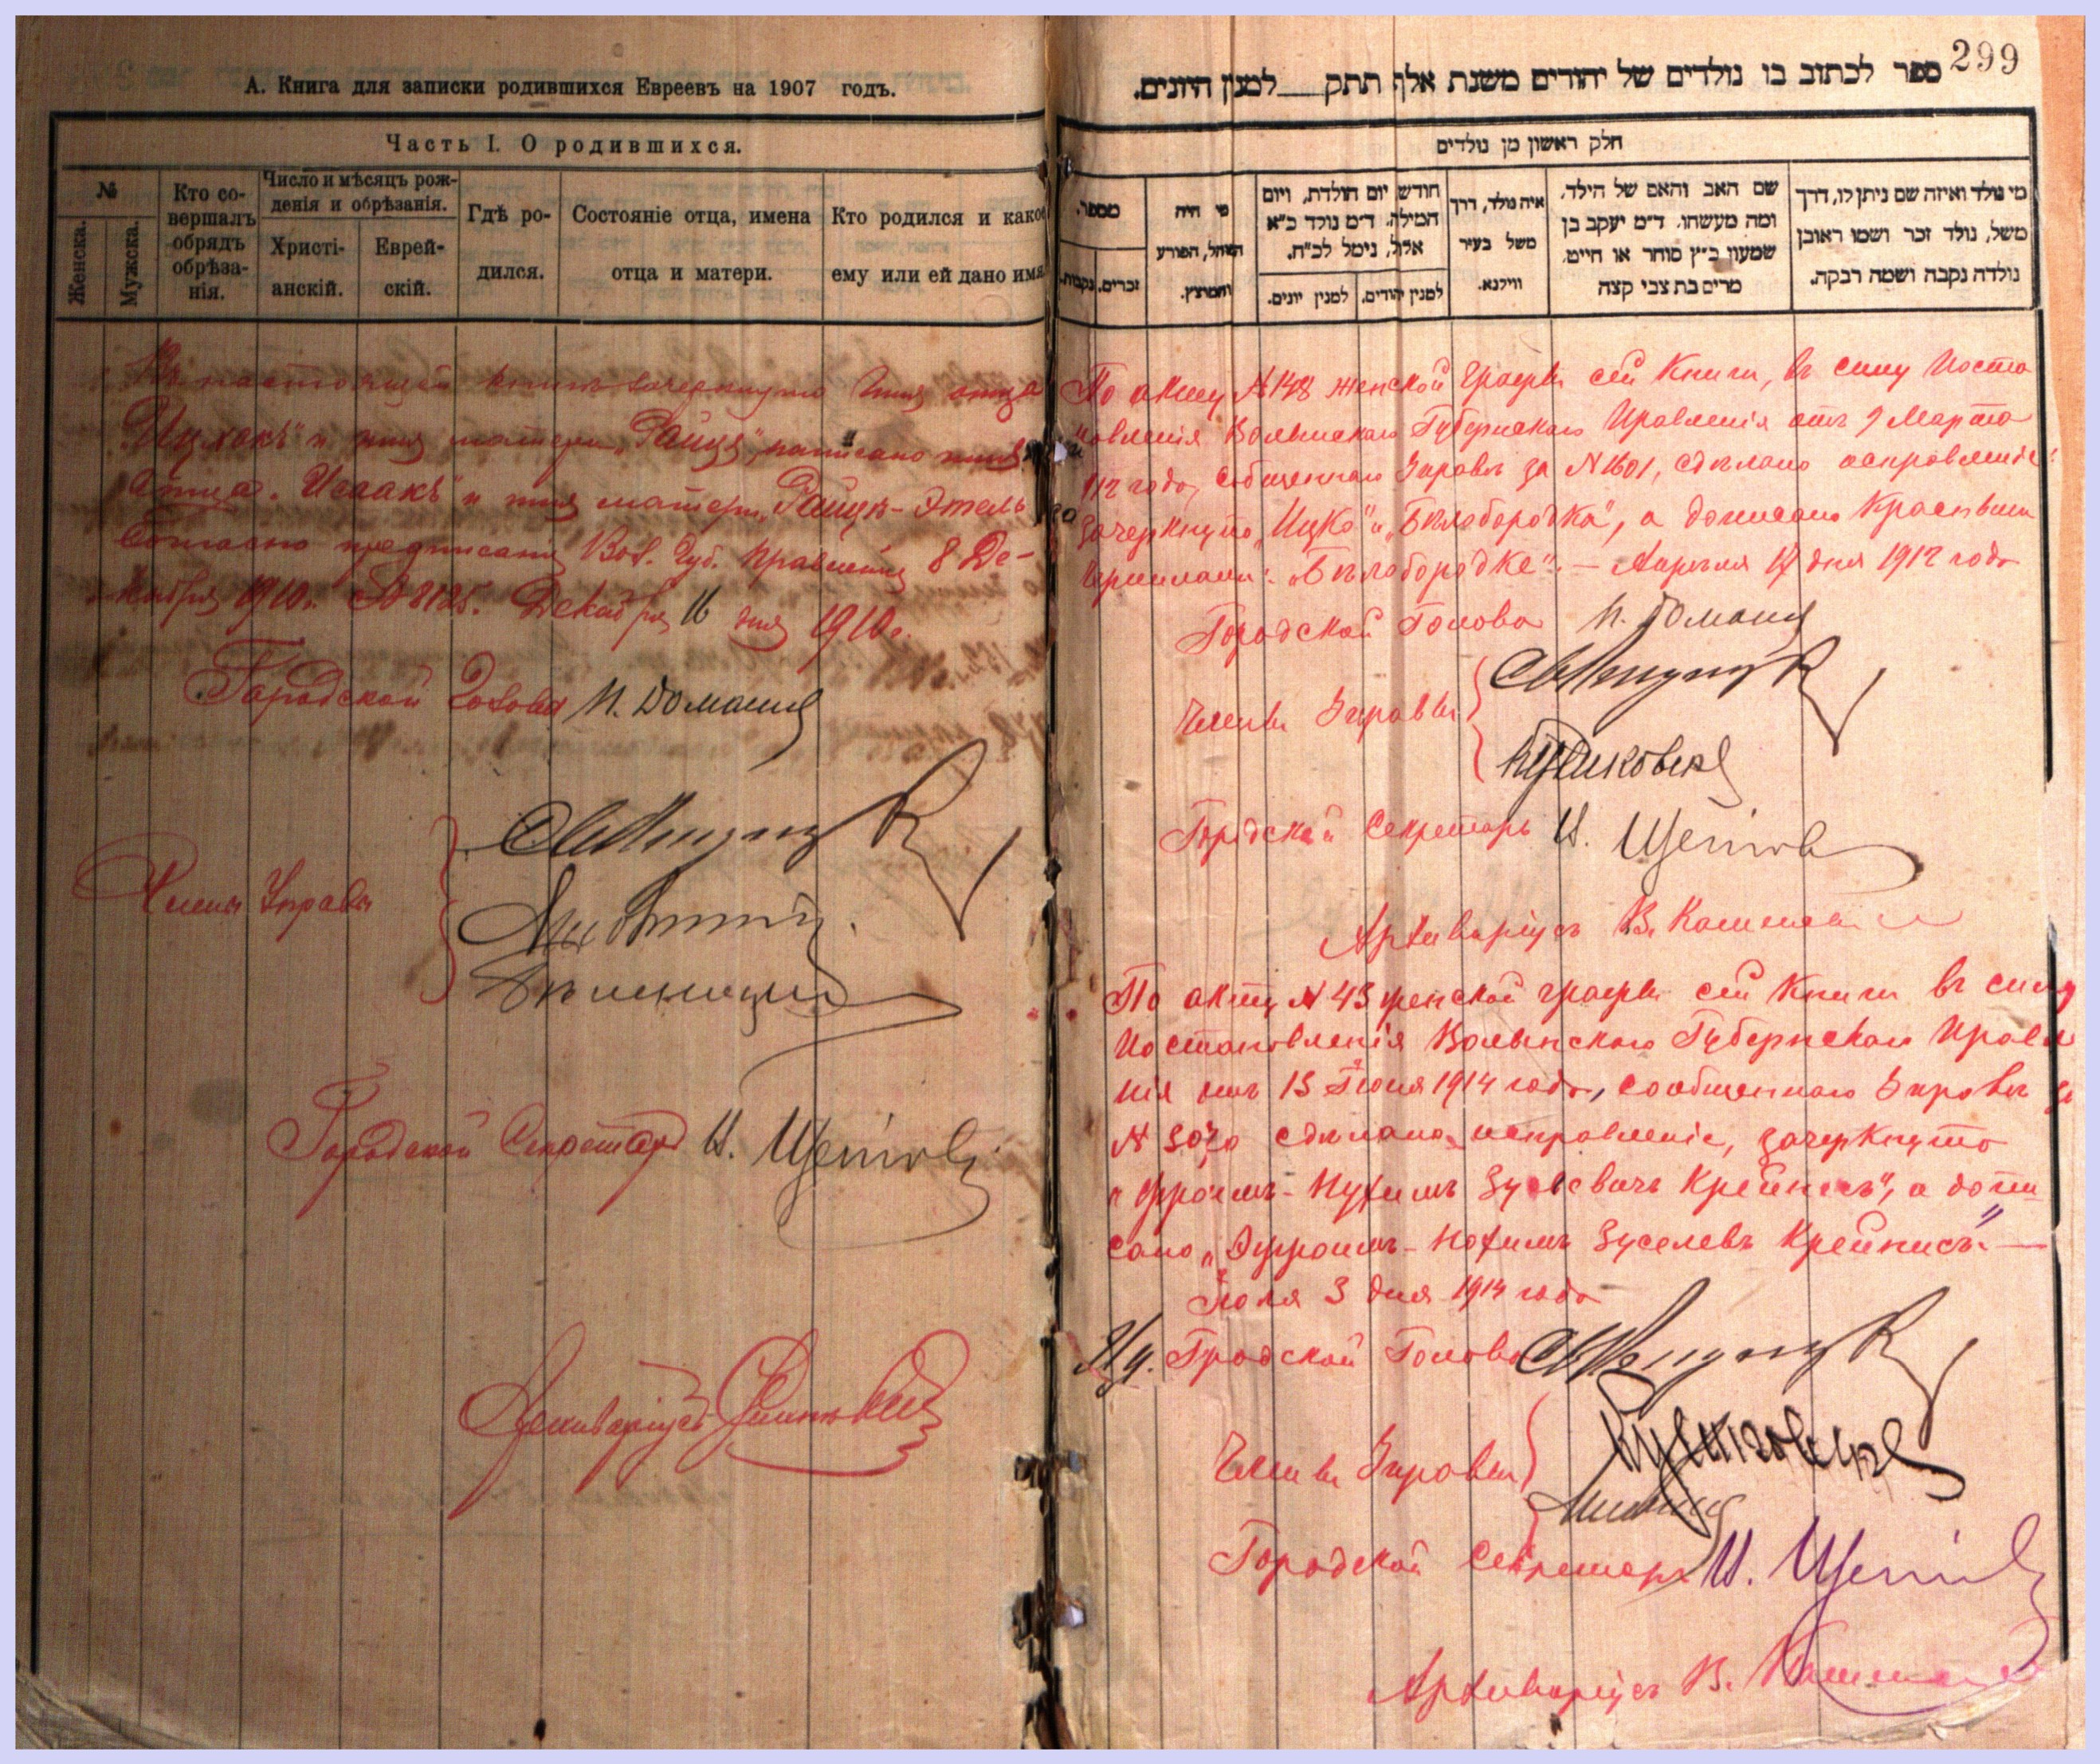 А. Книга для записки родившихся Евреевъ на 1907 годъ.
Часть I. О родившихся.
№
Женска.
Мужска.
Кто со-
вершалъ
обрядъ
обрѣза-
нія.
Число и мѣсяцъ рож-
денія и обрѣзанія.
Христі-
анскій.
Еврей-
скій.
Гдѣ ро-
дился.
Состояніе отца, имена
отца и матери.
Кто родился и какое
ему или ей дано имя
Въ настоящей книгѣ зачеркнуто имя отца
"Ицхокъ" и имя матери "Райця", написано имя
отца "Исаакъ" и имя матери "Райця-Этель
Согласно предписанія Вол. Губ. Правленія 8 Де-
кабря 1910 г. № 8125. Декабря 16 дня 1910 г.
Городской Голова И. Домания
Члены Управы
Городской Секретарь И.
Архиваріусъ
299
ספר לכתוב בו נולדים של יהודים משנת אלף תתק__למנין היונים.
חלק ראשון מן נולדים
מספר.
זכרים.
נקבות.
מי היה
המוהל, הפורע
והמוצץ.
חודש יום הולדת, ויום
המילה. ד״מ נולד כ״א
אלול, נימל לכ״ח.
למנין יונים.
למנין יהודים.
איה נולד, דרך
משל בעיר
ווילנא.
שם האב והאם של הילד,
ומה מעשהו. ד״מ יעקב בן
שמעון כ״ץ סוחר או חייט,
מרים בת צבי קצה
מי נולד ואיזה שם ניתן לו, דרך
משל, נולד זכר ושמו ראובן
נולדה נקבה ושמה רבקה.
По акту № 148 женской графы сей Книги, въ силу Поста
новленія Волынскаго Губернскаго Правленія отъ 9 Марта
912 года, сообщеннаго Управѣ за № 1601, сдѣлано исправленіе:
зачеркнуто "Ицко" и "Бѣлобородка", а дописано красными
чернилами: "Бѣлобородке". — Апрѣля 17 дня 1912 года
Городской Голова И. Домания
Члены Управы
Городской Секретарь И.
Архиваріусъ В.
По акту № 43 женской графы сей Книги въ силу
Постановленія Волынскаго Губернскаго Правле
нія отъ 13 Іюня 1914 года, сообщеннаго Управѣ за
№ сдѣлано исправленіе, зачеркнуто
"Фроимъ-Нухимъ Крейнисъ", а допи
сано "Эфроимъ-Нохимъ Зуселевъ Крейнисъ". —
Іюля 3 дня 1914 года
И д. Городской Голова
Члены Управы
Городской Секретарь И.
Архиваріусъ В.